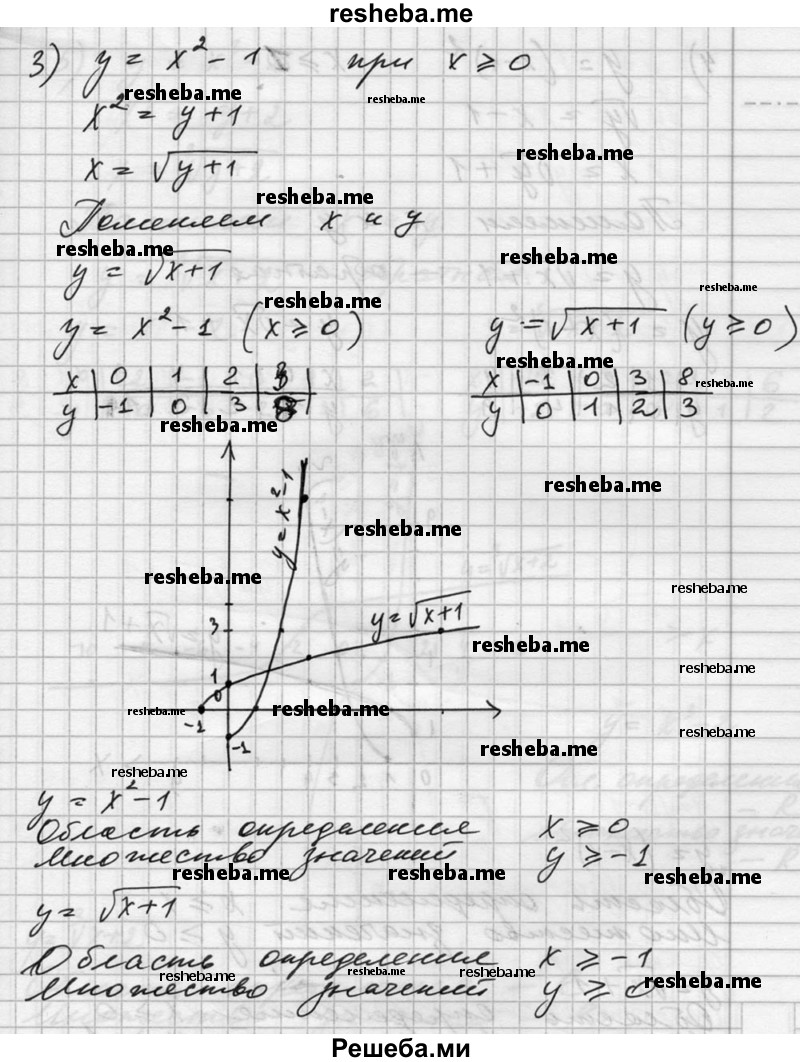 resheba.me
3) y = x² - 1 при x ≥ 0
resheba.me
resheba.me
x² = y + 1
resheba.me
x = √(y + 1)
resheba.me
Поменяем x и y
resheba.me
resheba.me
y = √(x + 1)
resheba.me
resheba.me
y = x² - 1 (x ≥ 0)
y = √(x + 1) (y ≥ 0)
resheba.me
resheba.me
x | 0 | 1 | 2 | 3
y | -1 | 0 | 3 | 8
x | -1 | 0 | 3 | 8
y | 0 | 1 | 2 | 3
resheba.me
resheba.me
y = x² - 1
resheba.me
resheba.me
resheba.me
y = √(x + 1)
3
resheba.me
resheba.me
1
0
resheba.me
resheba.me
-1
-1
resheba.me
resheba.me
resheba.me
y = x² - 1
Область определения x ≥ 0
Множество значений y ≥ -1
resheba.me
resheba.me
y = √(x + 1)
Область определения x ≥ -1
resheba.me
resheba.me
resheba.me
resheba.me
Множество значений y ≥ 0
Решеба.ми